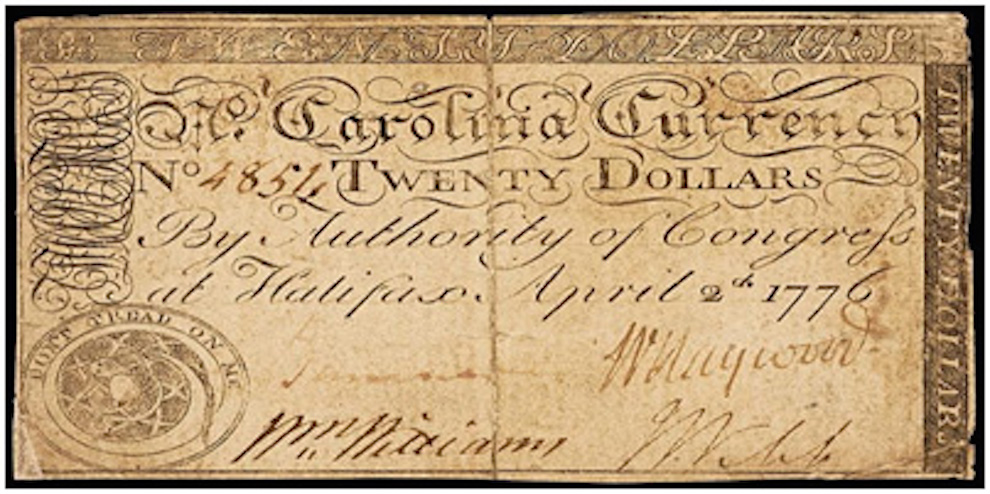 TWENTY DOLLARS.
No. Carolina Currency
No 4854 TWENTY DOLLARS
By Authority of Congress
at Halifax. April 2th 1776
TWENTY DOLLARS.
DONT TREAD ON ME
W Haywood
Wm Williams
J Webb